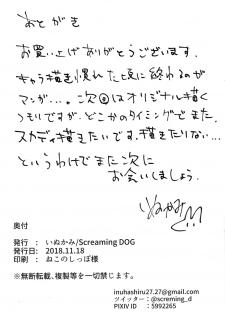 あとがき
お買い上げありがとうございます.
キャラ描き慣れた頃に終わるのが
マンガ…。次回はオリジナル描く
つもりですが、どこかのタイミングでまた、
スカディ描きたいです。描きたりない…
というわけでまた次に
お会いしましょう.
いぬかみ
奥付
発行： いぬかみ/Screaming DOG
発行日： 2018.11.18
印刷： ねこのしっぽ様
※無断転載、複製等を一切禁じます。
inuhashiru27.27@gmail.com
ツイッター：@screming_d
PIXIV ID：5992265